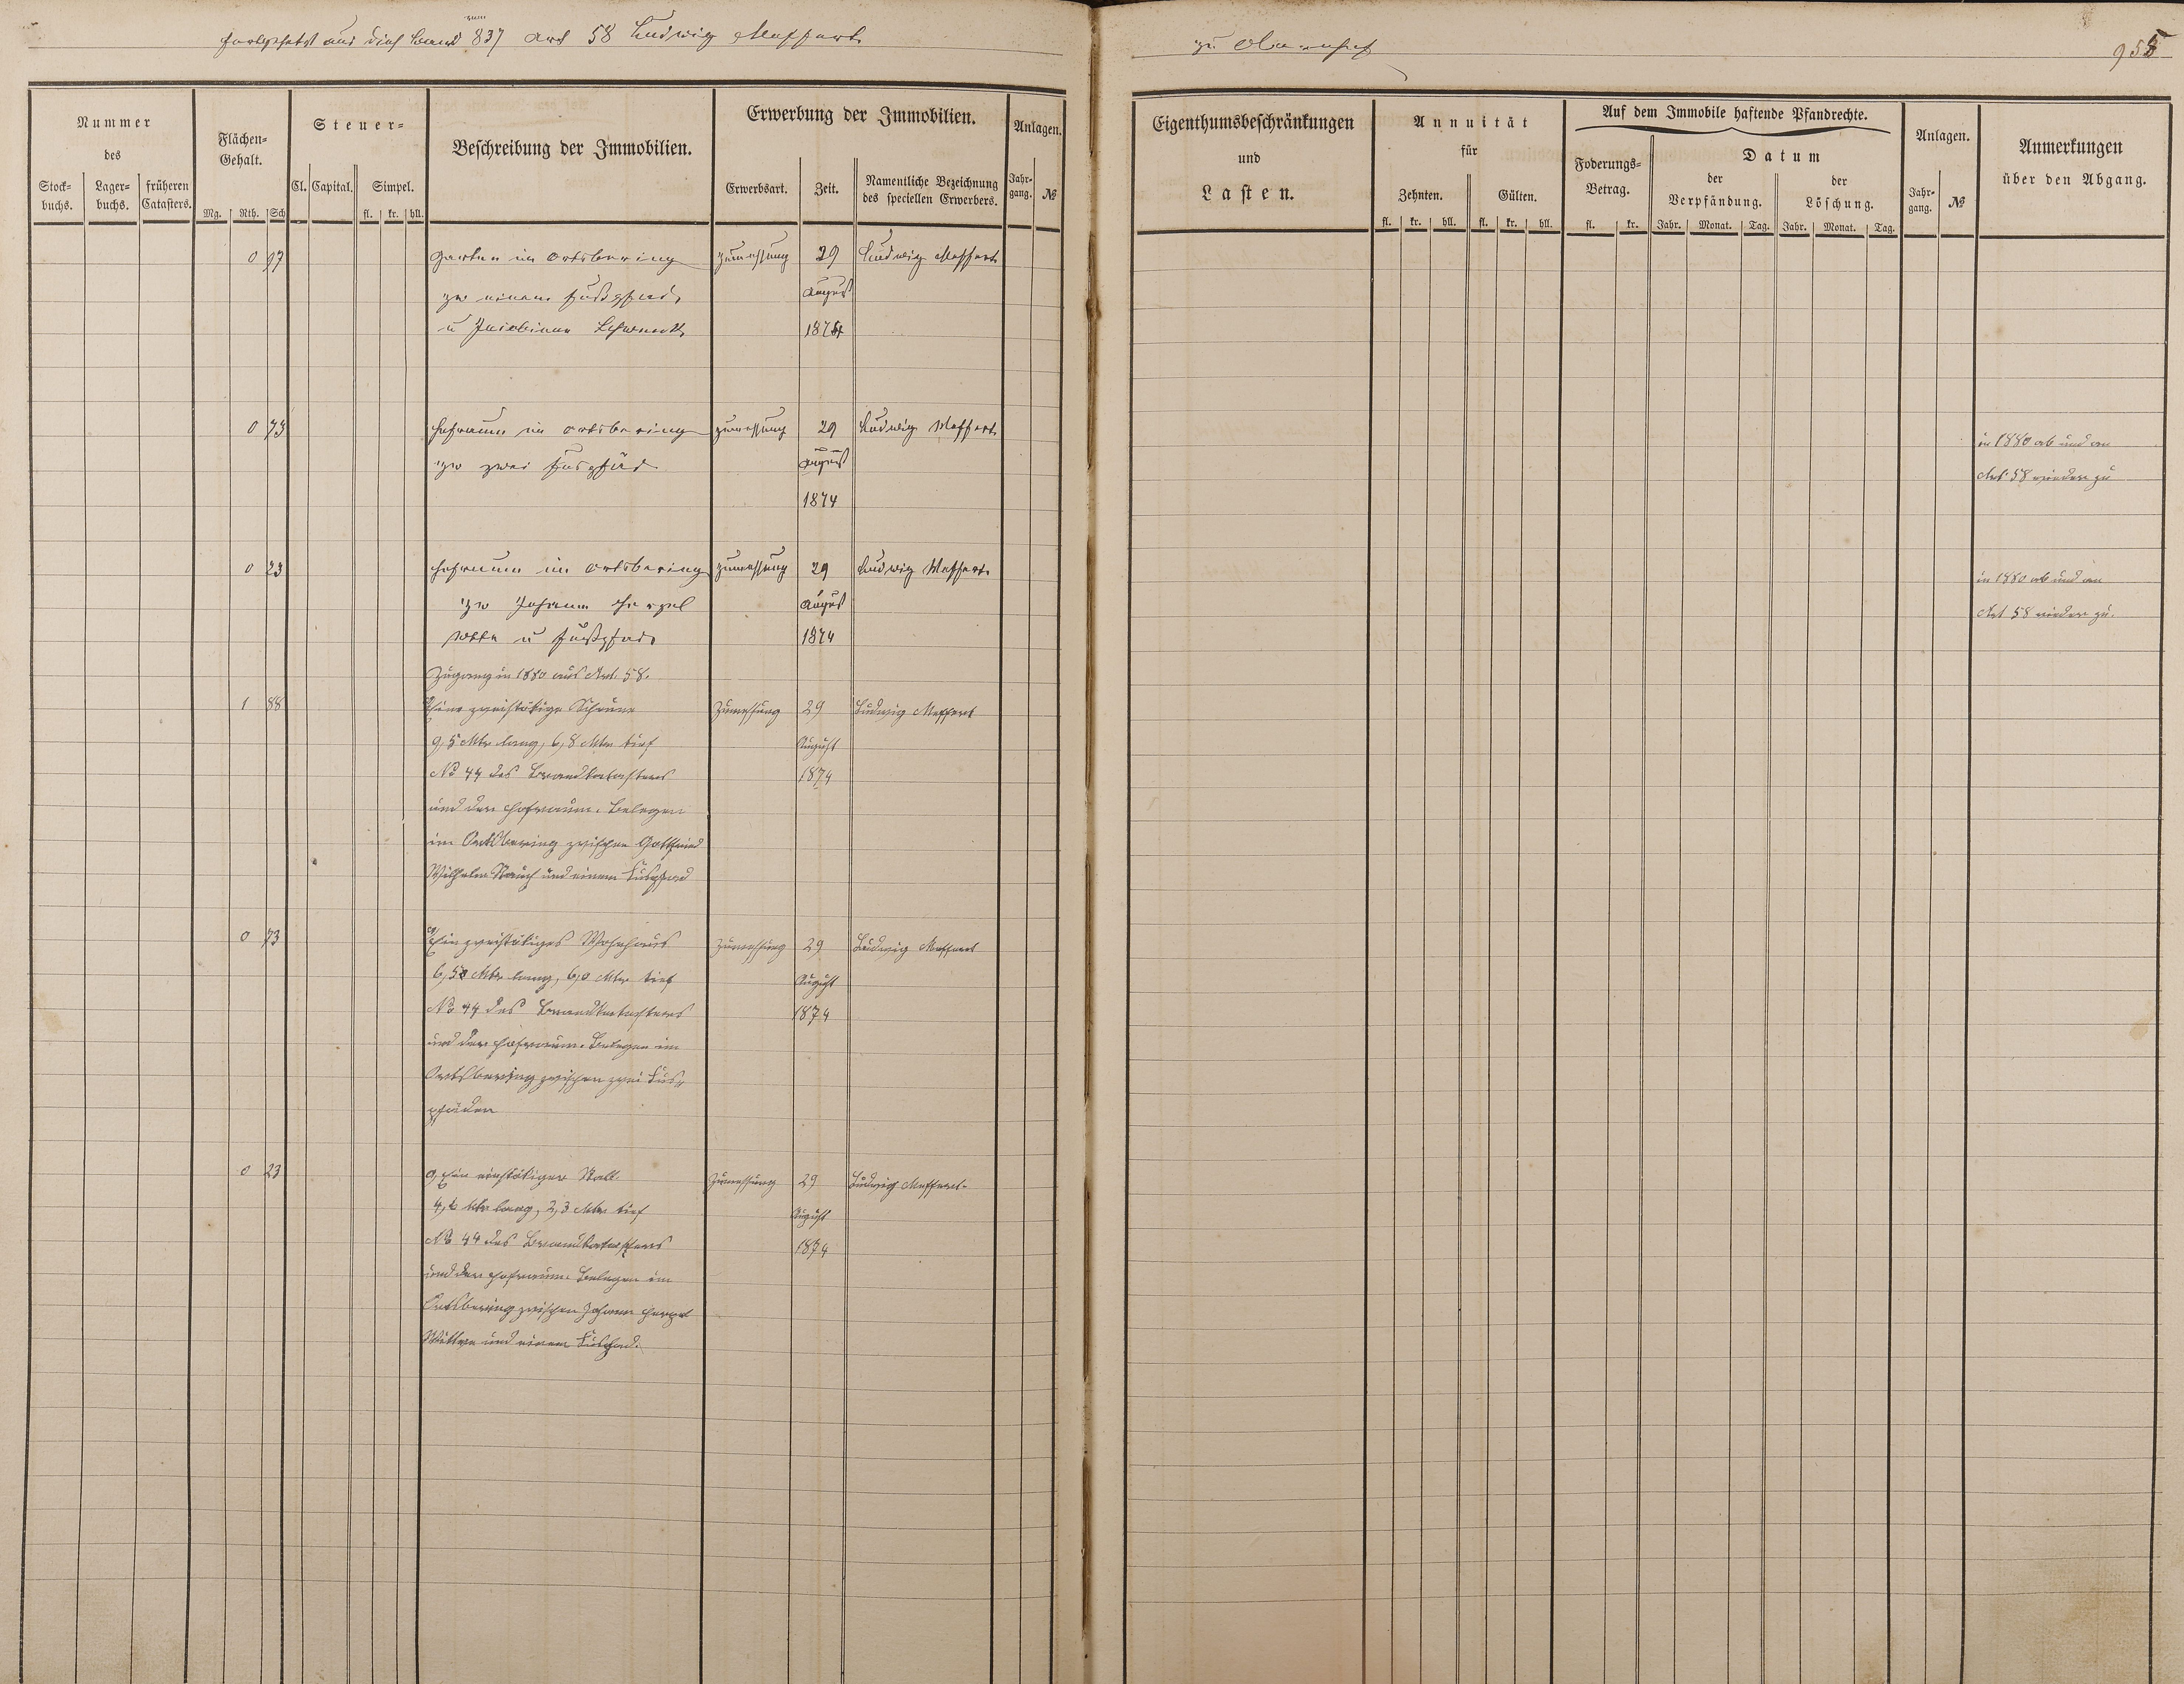 zum
fortgesetzt aus dieß Band 837 Art 58 Ludwig Meffert
zu
958
Nummer
des
Stock-
buchs.
Lager-
buchs.
früheren
Catasters.
Flächen-
Gehalt.
Mg. Rth. Sch
Steuer-
Cl. Capital. Simpel.
fl. kr. hll.
Beschreibung der Immobilien.
Erwerbung der Immobilien.
Erwerbsart. Zeit.
Namentliche Bezeichnung
des speciellen Erwerbers.
Anlagen.
Jahr-
gang.
№
Eigenthumsbeschränkungen
und
Lasten.
Annuität
für
Zehnten. Gülten.
fl. kr. hll. fl. kr. hll.
Auf dem Immobile haftende Pfandrechte.
Foderungs-
Betrag.
fl. kr.
Datum
der
Verpfändung.
Jahr. Monat. Tag.
der
Löschung.
Jahr. Monat. Tag.
Anlagen.
Jahr-
gang.
№
Anmerkungen
über den Abgang.
0 97 Garten im Ortsbering Zumessung 29 Ludwig Meffert
zw einem Fußpfad August
u 1874
0 73 Hofraum im Ortsbering Zumessung 29 Ludwig Meffert
in 1880 ab und an
zw zwei Fuspfäd August
Art 58 wieder zu
1874
0 23 Hofraum im Ortsbering Zumessung 29 Ludwig Meffert
in 1880 ab und an
zw Johann Herzel August
Art 58 wieder zu.
Wttw u Fußpfad 1874
Zugang in 1880 aus Art. 58.
1 88 Eine zweistökige Scheune Zumessung 29 Ludwig Meffert
9,5 Mtr lang, 6,8 Mtr tief August
No 44 des Brandkatasters 1874
und der Hofraum. Belegen
im Ortsbering zwischen Gottfried
Wilhelm und einem Fuspfad
0 73 Ein zweistökiges Wohnhaus Zumessung 29 Ludwig Meffert
6,50 Mtr lang, 6,0 Mtr tief August
No 44 des Brandkatasters 1874
und der Hofraum. Belegen im
Ortsbering zwischen zwei Fus-
pfäden
0 23 Ein einstökiger Stall. Zumessung 29 Ludwig Meffert.
Mtr lang, 2,3 Mtr tief August
No 44 des Brandkatasters 1874
und der Hofraum. Belegen im
Ortsbering zwischen Johann Herzel
Wittwe und einem Fuspfad.